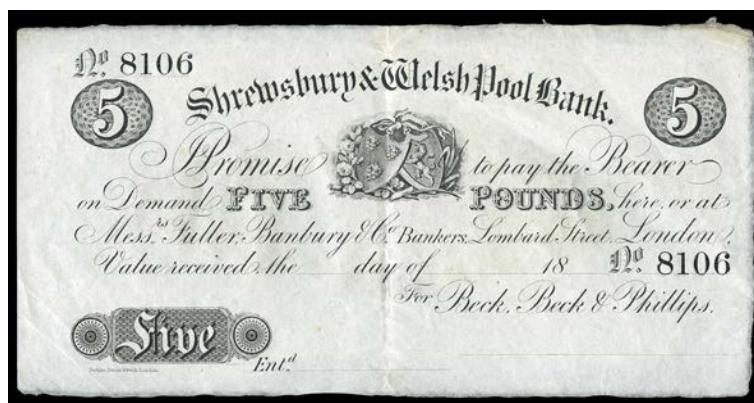 No. 8106
Shrewsbury & Welsh Pool Bank.
5 5
I Promise to pay the Bearer
on Demand FIVE POUNDS, here, or at
Mess.rs Fuller, Banbury & Co. Bankers, Lombard Street, London,
Value received the day of 18 No. 8106
For Beck, Beck & Phillips.
Five
Ent.d